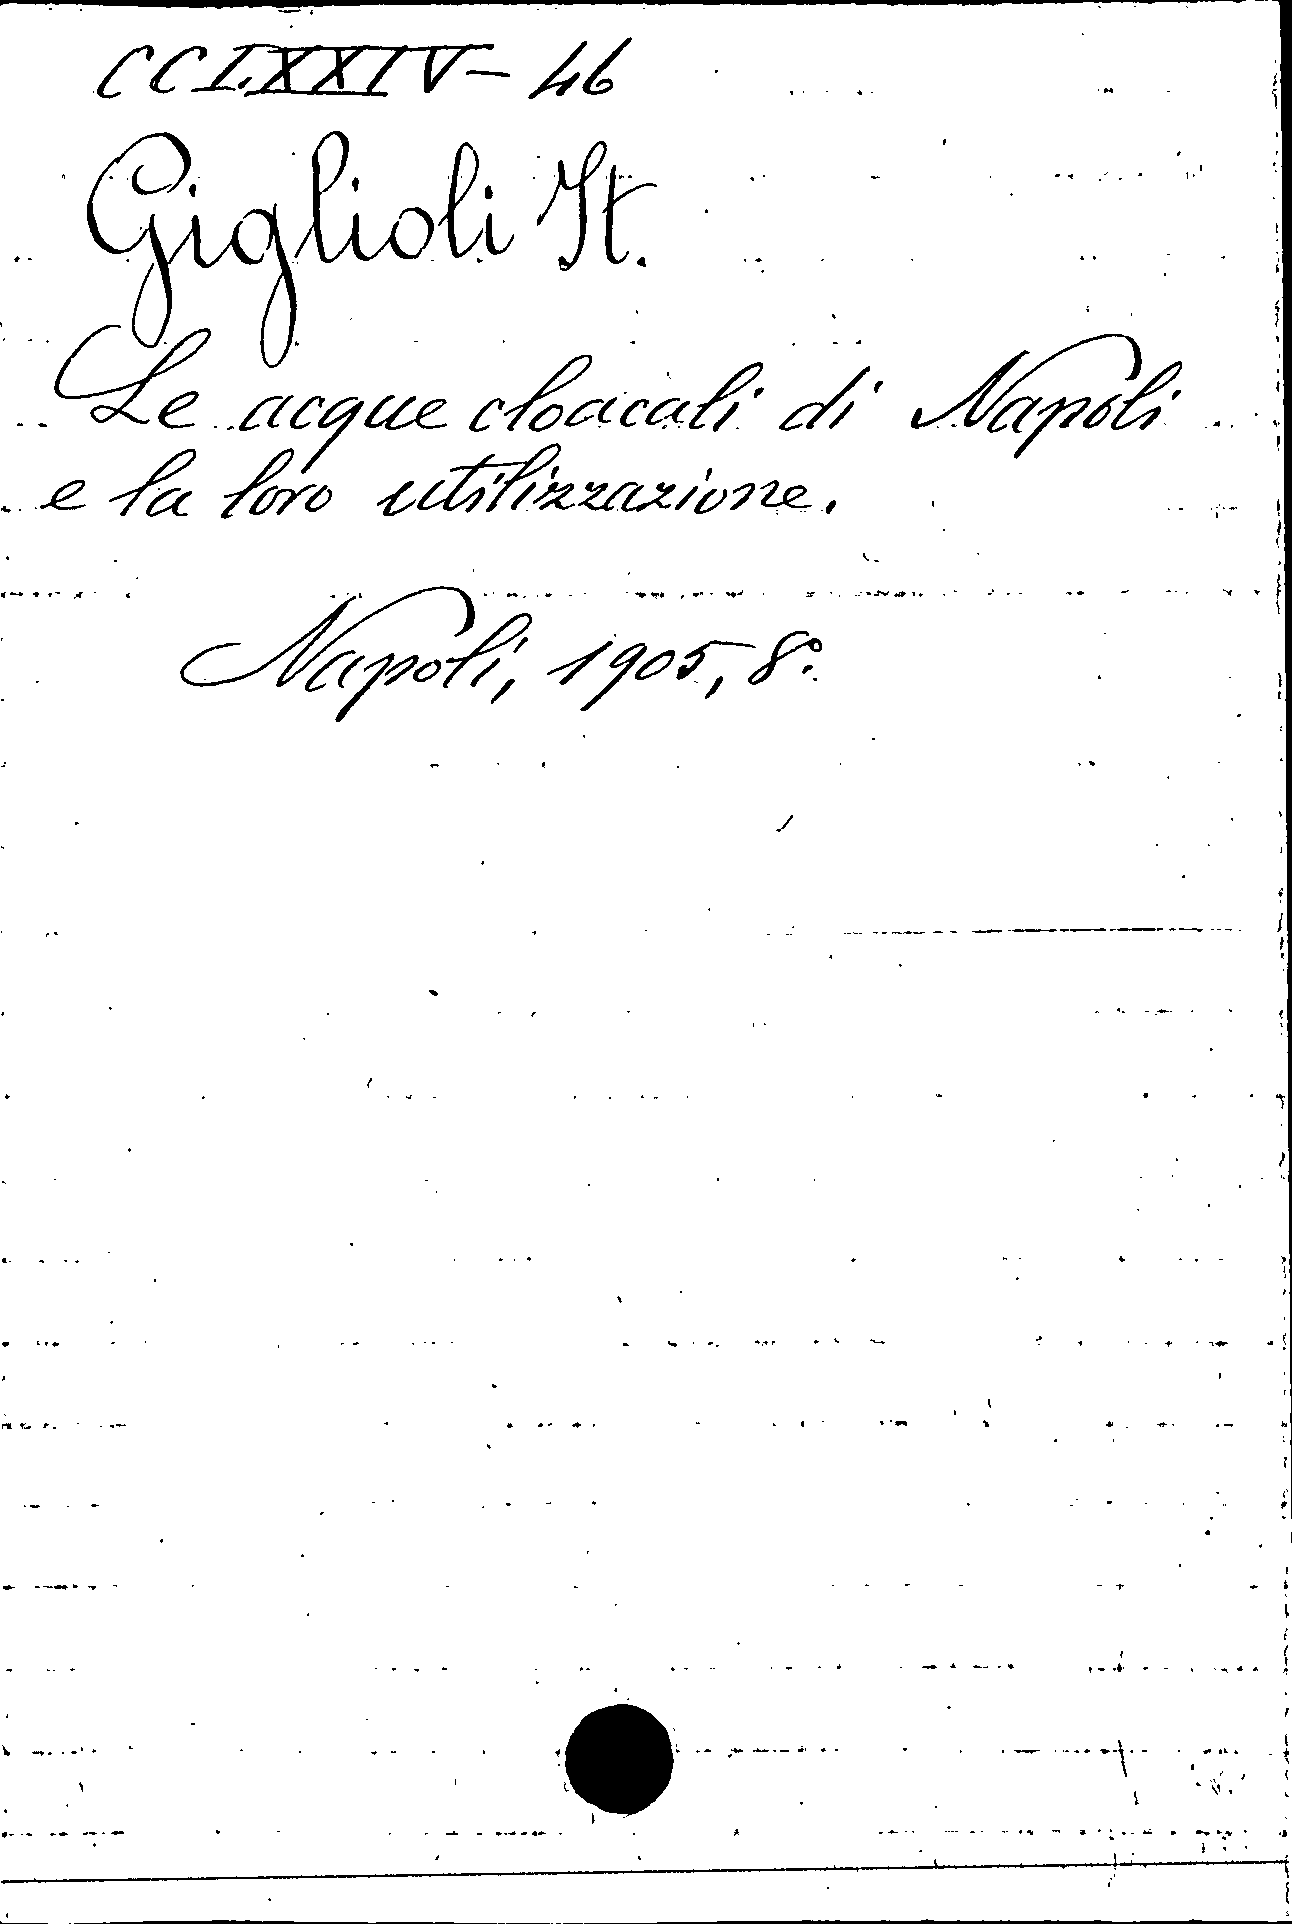 CCLXXIV - 46
Giglioli It.
Le acque cloacali di Napoli
e la loro utilizzazione.
Napoli, 1905, 8°.